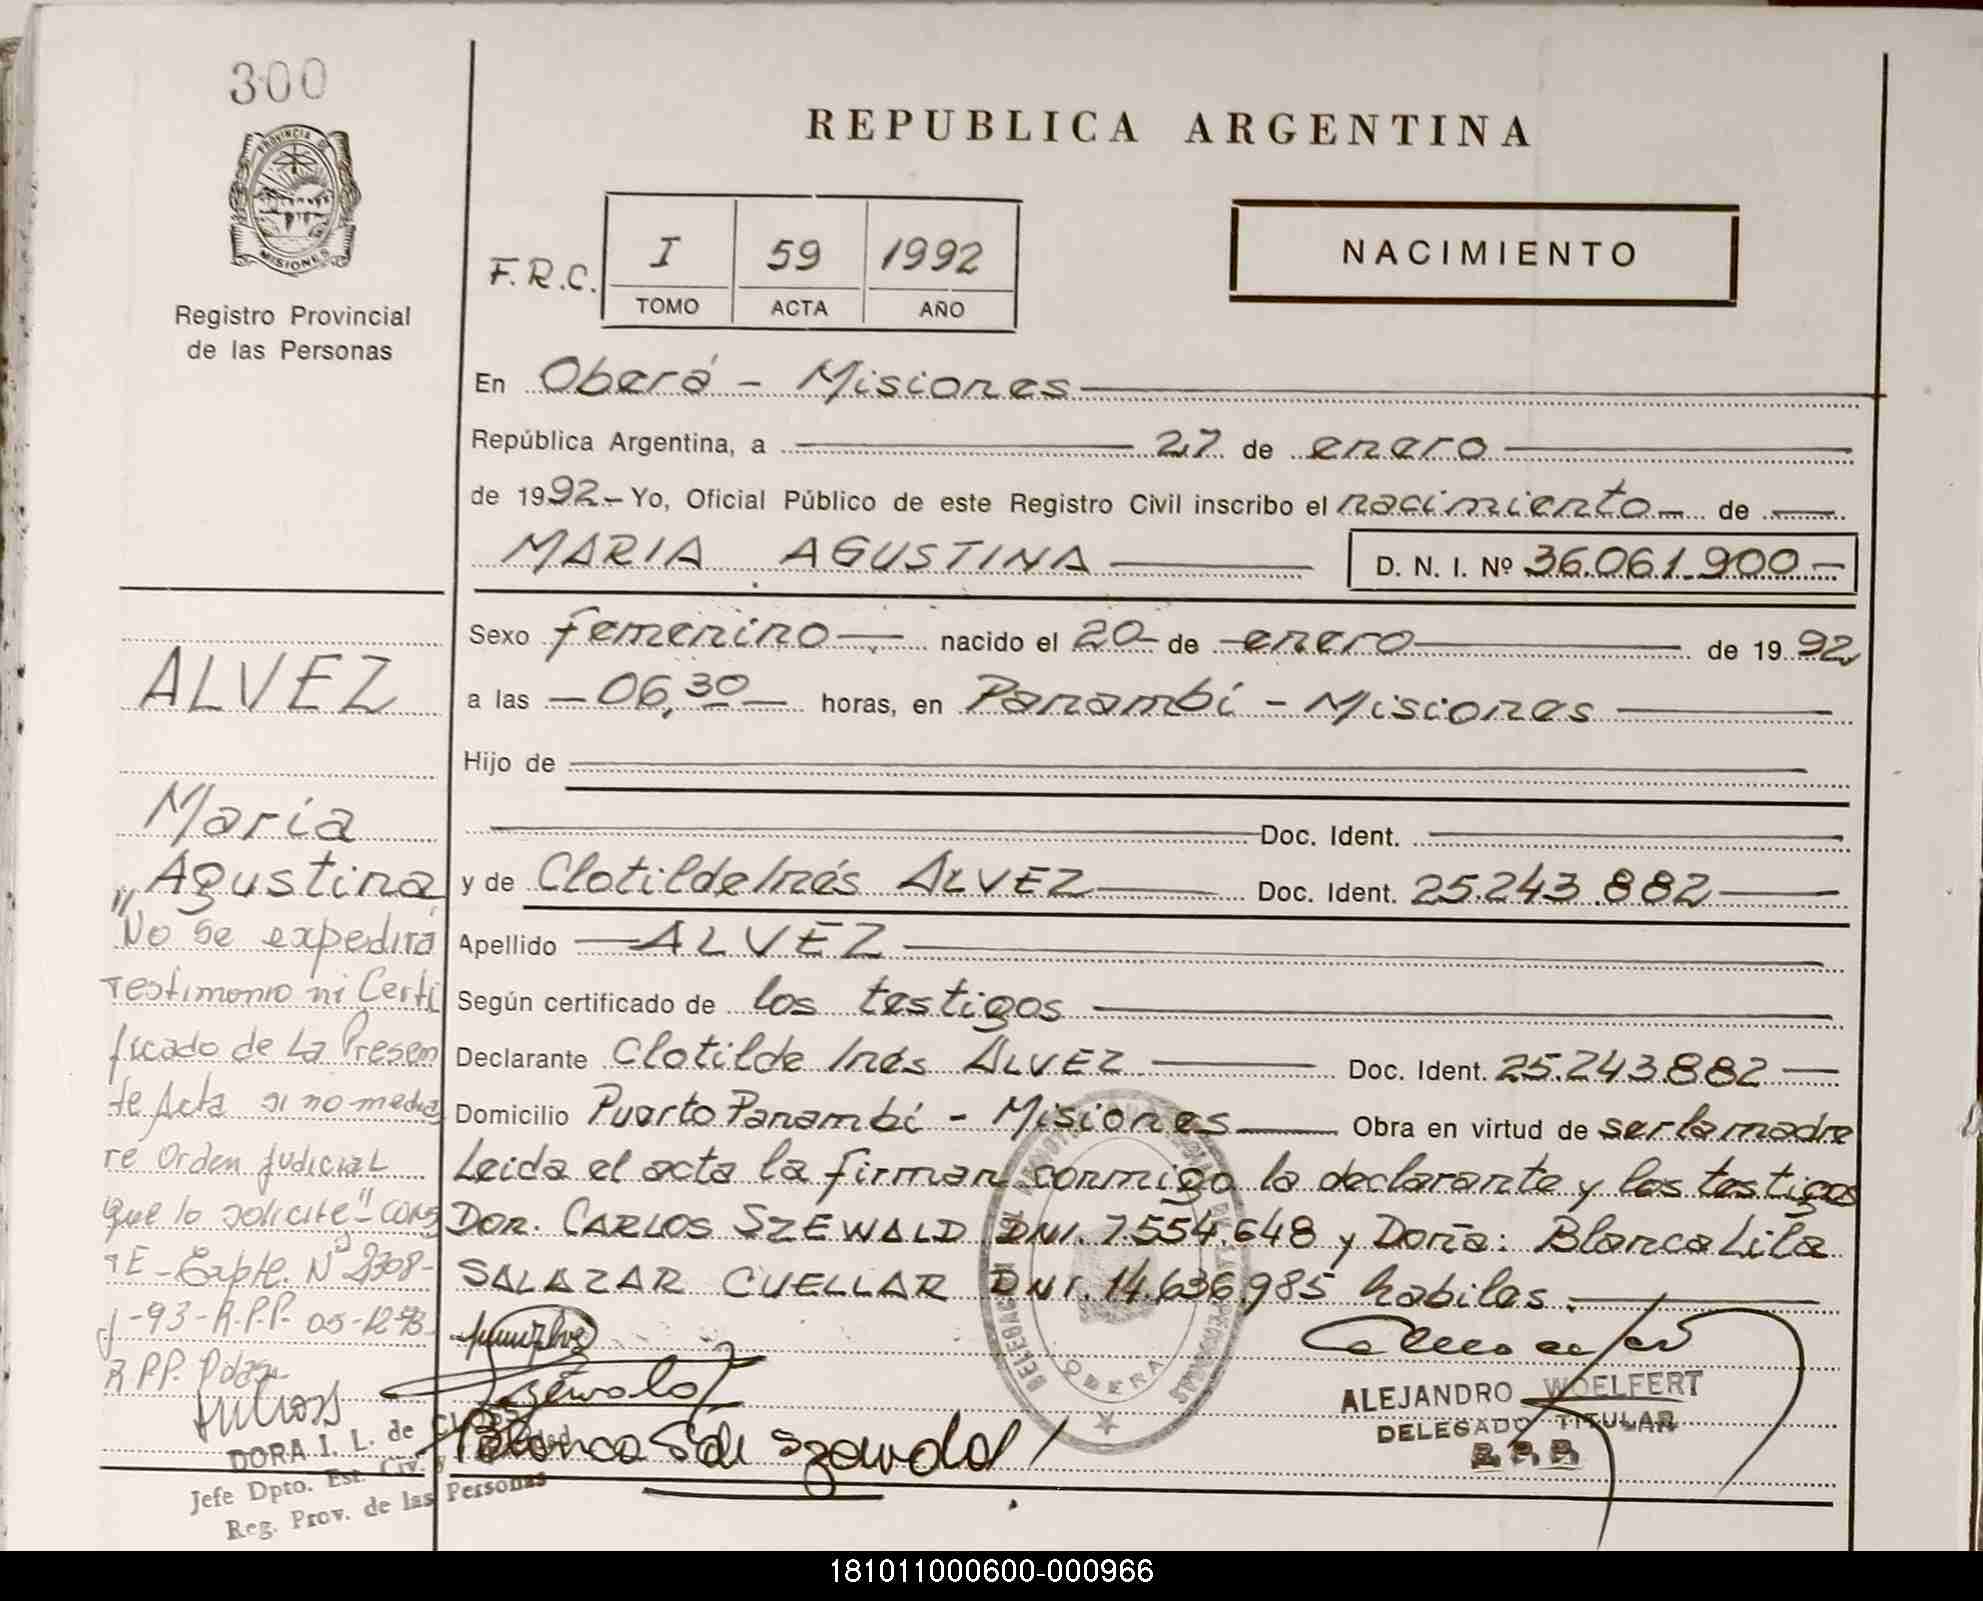 300
PROVINCIA DE
MISIONES
Registro Provincial
de las Personas
REPUBLICA ARGENTINA
F.R.C.
I 59 1992
TOMO ACTA AÑO
NACIMIENTO
En Oberá - Misiones
República Argentina, a 27 de enero
de 1992 - Yo, Oficial Público de este Registro Civil inscribo el nacimiento de
MARIA AGUSTINA D. N. I. Nº 36.061.900
Sexo femenino nacido el 20 de enero de 1992
a las 06,30 horas, en Panambí - Misiones
Hijo de
Doc. Ident.
y de Clotilde Inés ALVEZ Doc. Ident. 25.243.882
Apellido ALVEZ
Según certificado de los testigos
Declarante Clotilde Inés ALVEZ Doc. Ident. 25.243.882
Domicilio Puerto Panambí - Misiones Obra en virtud de ser la madre
Leida el acta la firman conmigo la declarante y los testigos
Don. CARLOS SZEWALD DNI. 7.554.648 y Doña: Blanca Lila
SALAZAR CUELLAR DNI. 14.636.985 habiles.
ALVEZ
María
Agustina
"No se expedirá
Testimonio ni Certi
ficado de La Presen
te Acta si no media
re Orden Judicial
que lo solicite" - Cons
TE - Expte. Nº 2308-
J-93-R.P.P. 05-12-93
R.P.P. Pdas.
DORA I. L. de
Jefe Dpto. Est. Civ. y
Reg. Prov. de las Personas
Szewald
Blanca S de Szewald
OBERA
ALEJANDRO WOELFERT
DELEGADO TITULAR
R.P.P.
181011000600-000966